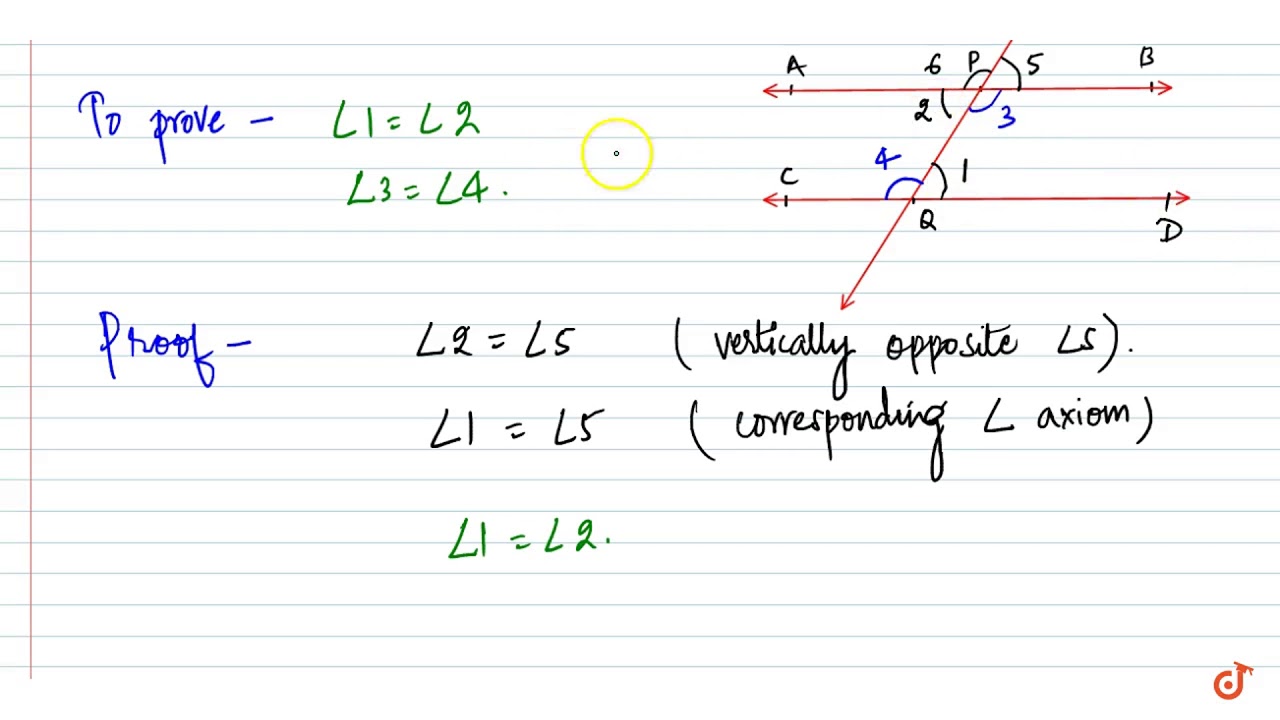 To prove - ∠1 = ∠2
∠3 = ∠4.
A 6 P 5 B
2 3
4 1
C Q D
Proof - ∠2 = ∠5 (vertically opposite ∠s).
∠1 = ∠5 (corresponding ∠ axiom)
∠1 = ∠2.